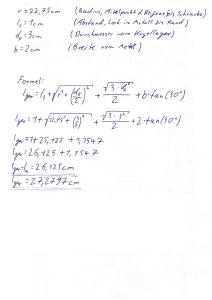 r = 22,75cm (Radius, Mittelpunkt d. bis Schraube)
l₁ = 1cm (Abstand, Loch in Metall bis Rand)
d₂ = 3cm (Durchmesser vom Kugellager)
b = 2cm (Breite vom Metall)
Formel:
lges = l₁ + √(r² + (d₂/2)²) + √(3·d²)/2 + b·tan(30°)
lges = 1 + √(22,75² + (3/2)²) + √(3·3²)/2 + 2·tan(30°)
lges = 1 + 25,125 + 1,1547
lges = 26,125 + 1,1547
= 26,125cm
lges = 27,2797cm